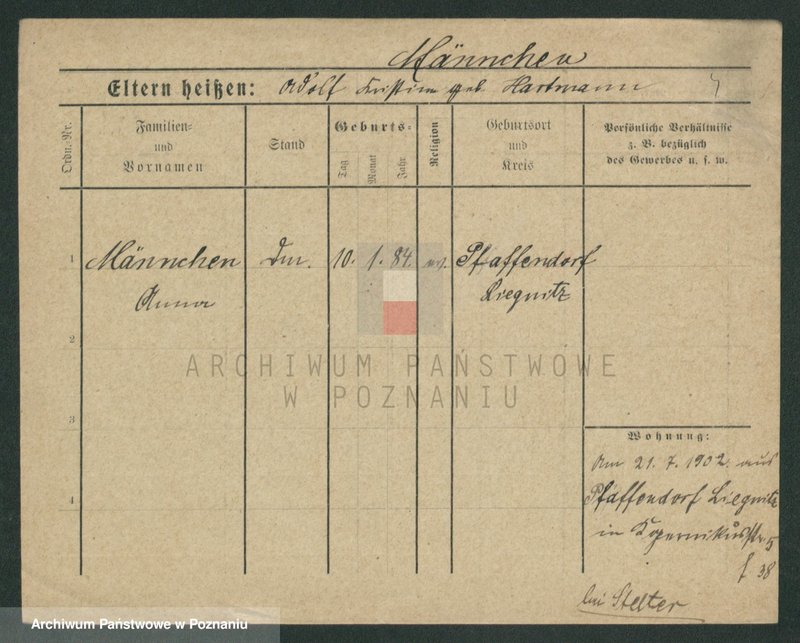 Männchen
Eltern heißen: Adolf Kristine geb. Hartmann
Ordn.-Nr.
Familien- und Vornamen
Stand
Geburts-
Tag
Monat
Jahr
Religion
Geburtsort und Kreis
Persönliche Verhältnisse
z. B. bezüglich
des Gewerbes u. s. w.
1 Männchen 10. 1. 84. ev. Pfaffendorf
Anna Liegnitz
2
ARCHIWUM PAŃSTWOWE
W POZNANIU
3
Wohnung:
Am 21. 7. 1902. aus
4 Pfaffendorf Liegnitz
in Kopernikusstr. 5
38
bei Stelter
Archiwum Państwowe w Poznaniu